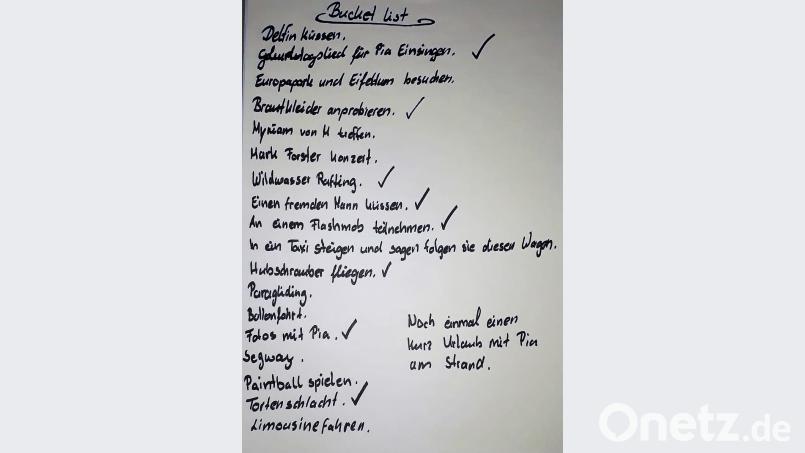 Bucket list
Delfin küssen.
Geburtstagslied für Pia Einsingen. ✓
Europapark und Eifelturm besuchen.
Brautkleider anprobieren. ✓
Myriam von M treffen.
Mark Forster Konzert.
Wildwasser Rafting. ✓
Einen fremden Mann küssen. ✓
An einem Flashmob teilnehmen. ✓
In ein Taxi steigen und sagen folgen sie diesen Wagen.
Hubschrauber fliegen. ✓
Paragliding.
Ballonfahrt.
Fotos mit Pia. ✓
Segway.
Paintball spielen.
Tortenschlacht. ✓
Limousine fahren.
Noch einmal einen
Kurz Urlaub mit Pia
am Strand.
Onetz.de